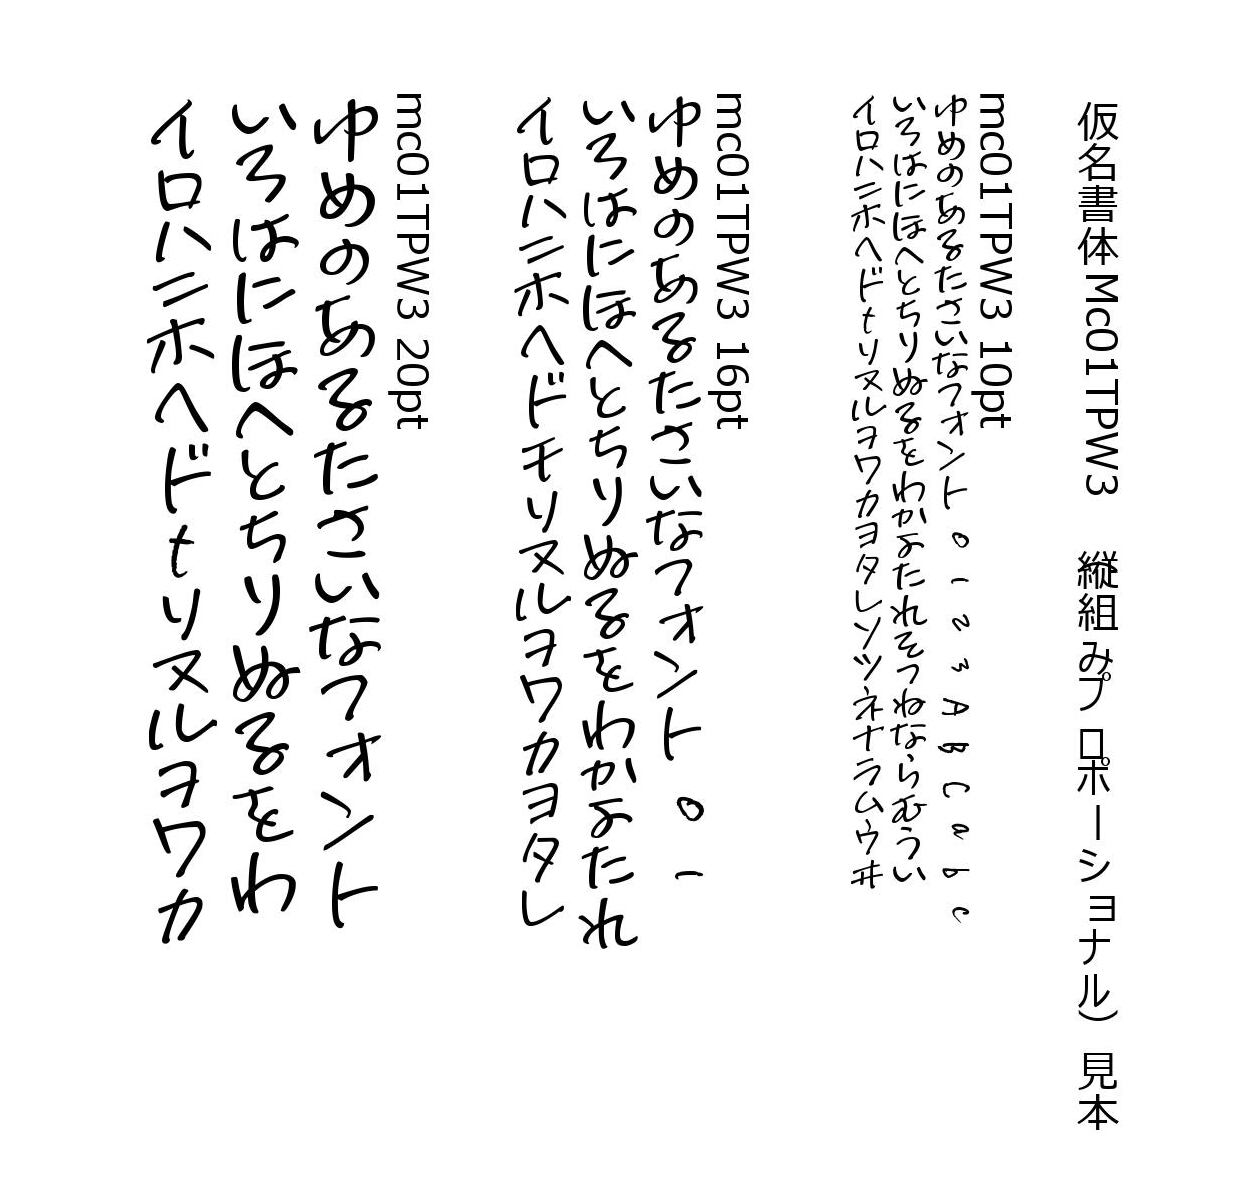 仮名書体Mc01TPW3　縦組みプロポーショナル）見本
mc01TPW3 10pt
ゆめのあるたさいなフォント0123ABCabc
いろはにほへとちりぬるをわかよたれそつねならむうい
イロハニホヘドtリヌルヲワカヨタレソツネナラムウヰ
mc01TPW3 16pt
ゆめのあるたさいなフォント01
いろはにほへとちりぬるをわかよたれ
イロハニホヘドチリヌルヲワカヨタレ
mc01TPW3 20pt
ゆめのあるたさいなフォント
いろはにほへとちりぬるをわ
イロハニホヘドtリヌルヲワカ